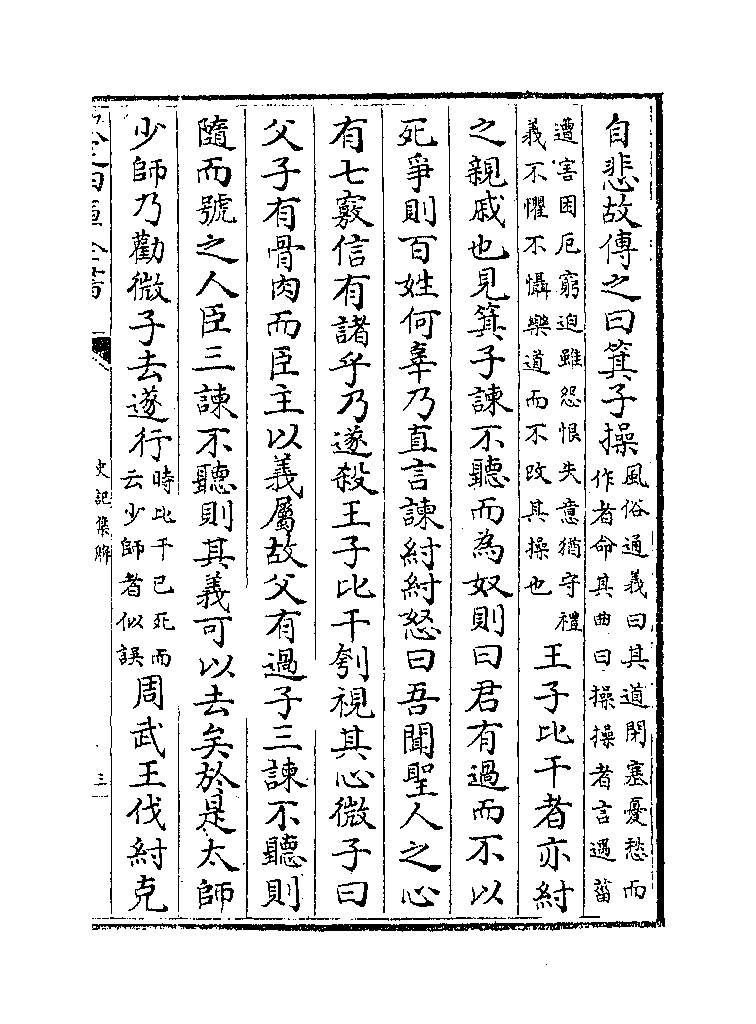 自悲故傳之曰箕子操風俗通義曰其道閉塞憂愁而作者命其曲曰操操者言遇菑
遭害困厄窮迫雖怨恨失意猶守禮義不懼不懾樂道而不改其操也王子比干者亦紂
之親戚也見箕子諫不聽而為奴則曰君有過而不以
死爭則百姓何辜乃直言諫紂紂怒曰吾聞聖人之心
有七竅信有諸乎乃遂殺王子比干刳視其心微子曰
父子有骨肉而臣主以義屬故父有過子三諫不聽則
隨而號之人臣三諫不聽則其義可以去矣於是太師
少師乃勸微子去遂行時比干已死而云少師者似誤周武王伐紂克
史記集解
三